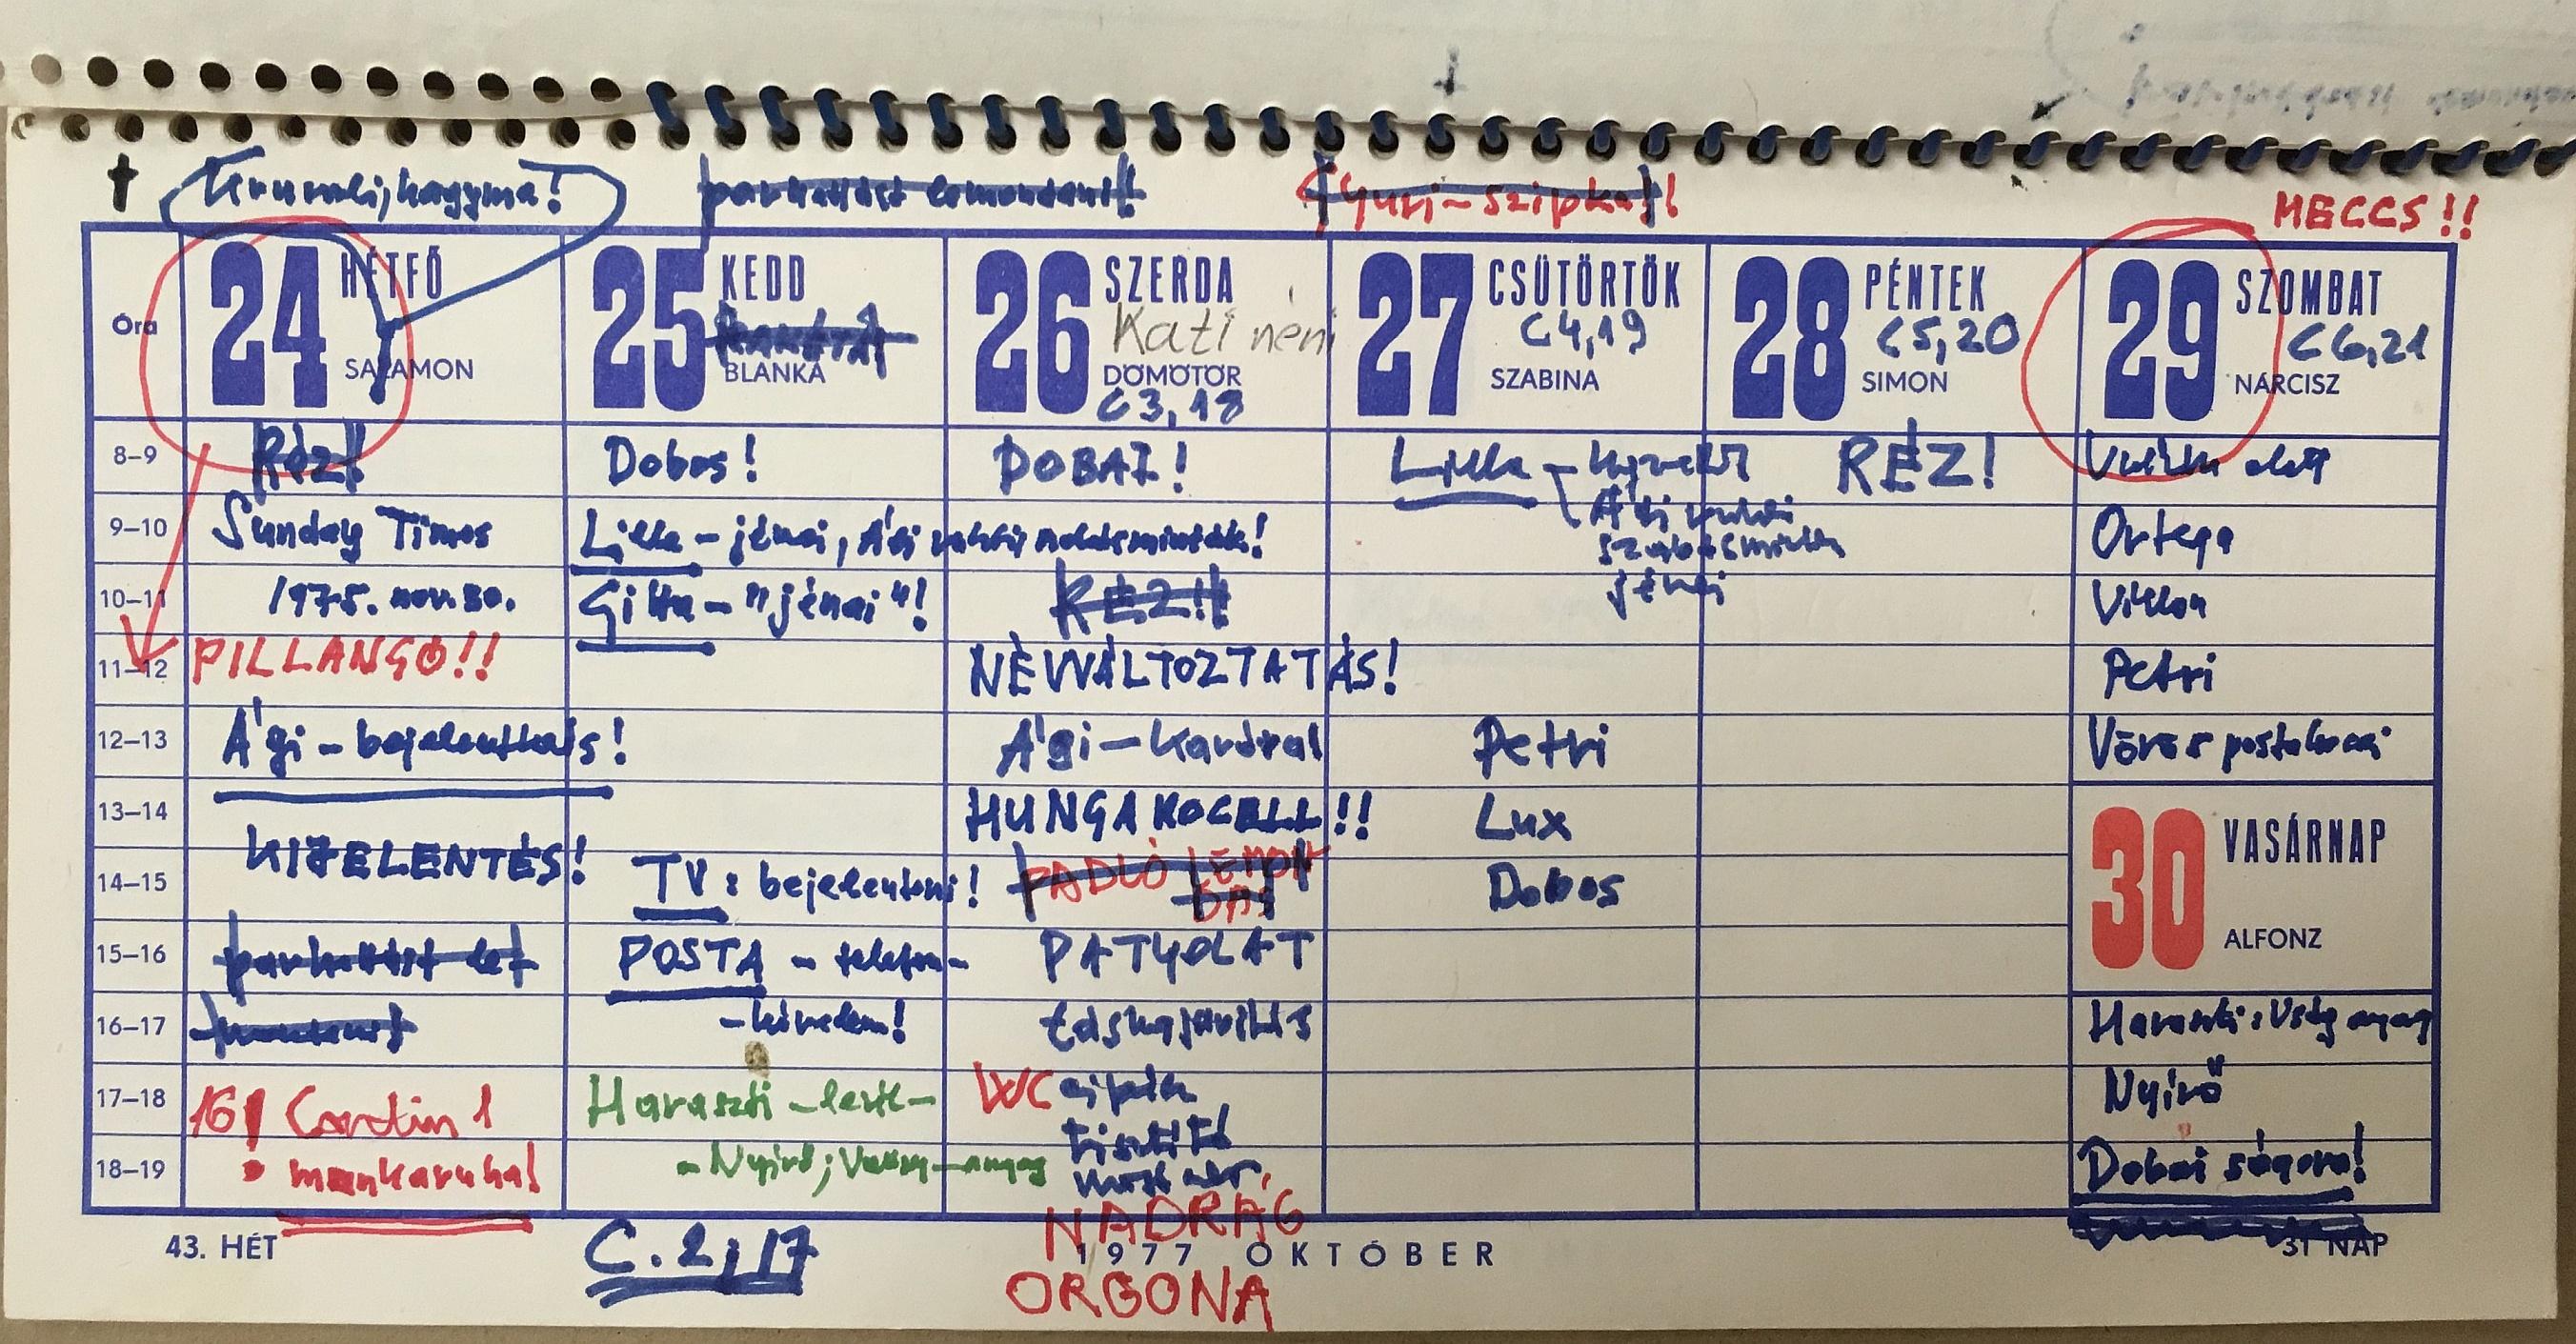 Krumpli, hagyma!
parkettást lemondani!
Gyuri-szipka!!
MECCS!!
Óra
24 HÉTFŐ
SALAMON
25 KEDD
BLANKA
26 SZERDA
Kati néni
DÖMÖTÖR
C3,18
27 CSÜTÖRTÖK
C4,19
SZABINA
28 PÉNTEK
C5,20
SIMON
29 SZOMBAT
C6,21
NÁRCISZ
8–9
Réz!
Dobos!
DOBAI!
Lilla –
RÉZ!
9–10
Sunday Times
Lilla – jénai, Ági
Ági
Ortega
10–11
1975. nov. 30.
Gitta – "jénai"!
RÉZ!!
jénai
Villon
11–12
PILLANGÓ!!
NÉVVÁLTOZTATÁS!
Petri
12–13
Ági – bejelentkezés!
Ági – Kardval
Petri
Vörös postakocsi
13–14
KIJELENTÉS!
HUNGAROCELL!!
Lux
30 VASÁRNAP
ALFONZ
14–15
TV: bejelenteni!
PADLÓ LEMON
DÁS
Dobos
15–16
parkettást le
POSTA – telefon-
PATYOLAT
16–17
mondani
- kérelem!
táskajavítás
Haraszti: Vség anyag
17–18
16! Cardin 1
Haraszti – levél –
WC
tisztító
Nyírő
18–19
munkaruha!
- Nyírő; anyag
Dobai
43. HÉT
C. 2, 17
NADRÁG
1977 OKTÓBER
31 NAP
ORGONA